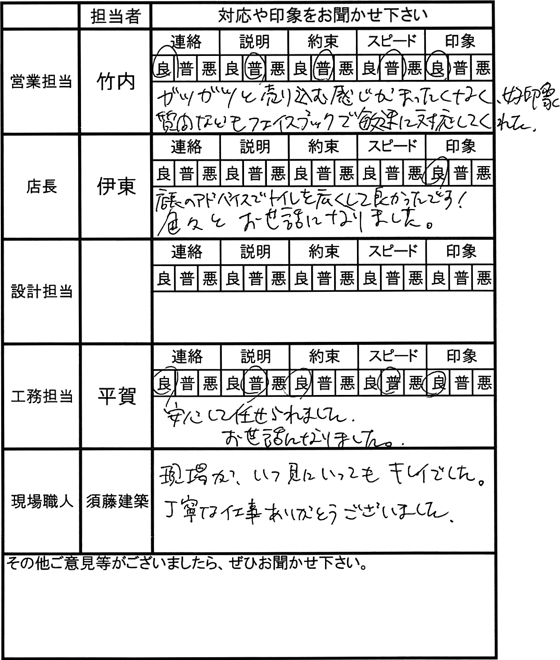 担当者 対応や印象をお聞かせ下さい
営業担当 竹内
連絡 説明 約束 スピード 印象
良 普 悪 良 普 悪 良 普 悪 良 普 悪 良 普 悪
ガツガツと売り込む感じがまったくなく、好印象
質問などもフェイスブックで敏速に対応してくれた。
店長 伊東
連絡 説明 約束 スピード 印象
良 普 悪 良 普 悪 良 普 悪 良 普 悪 良 普 悪
店長のアドバイスでトイレを広くして良かったです!
色々とお世話になりました。
設計担当
連絡 説明 約束 スピード 印象
良 普 悪 良 普 悪 良 普 悪 良 普 悪 良 普 悪
工務担当 平賀
連絡 説明 約束 スピード 印象
良 普 悪 良 普 悪 良 普 悪 良 普 悪 良 普 悪
安心して任せられました。
お世話になりました。
現場職人 須藤建築
現場が、いつ見にいってもキレイでした。
丁寧な仕事ありがとうございました。
その他ご意見等がございましたら、ぜひお聞かせ下さい。